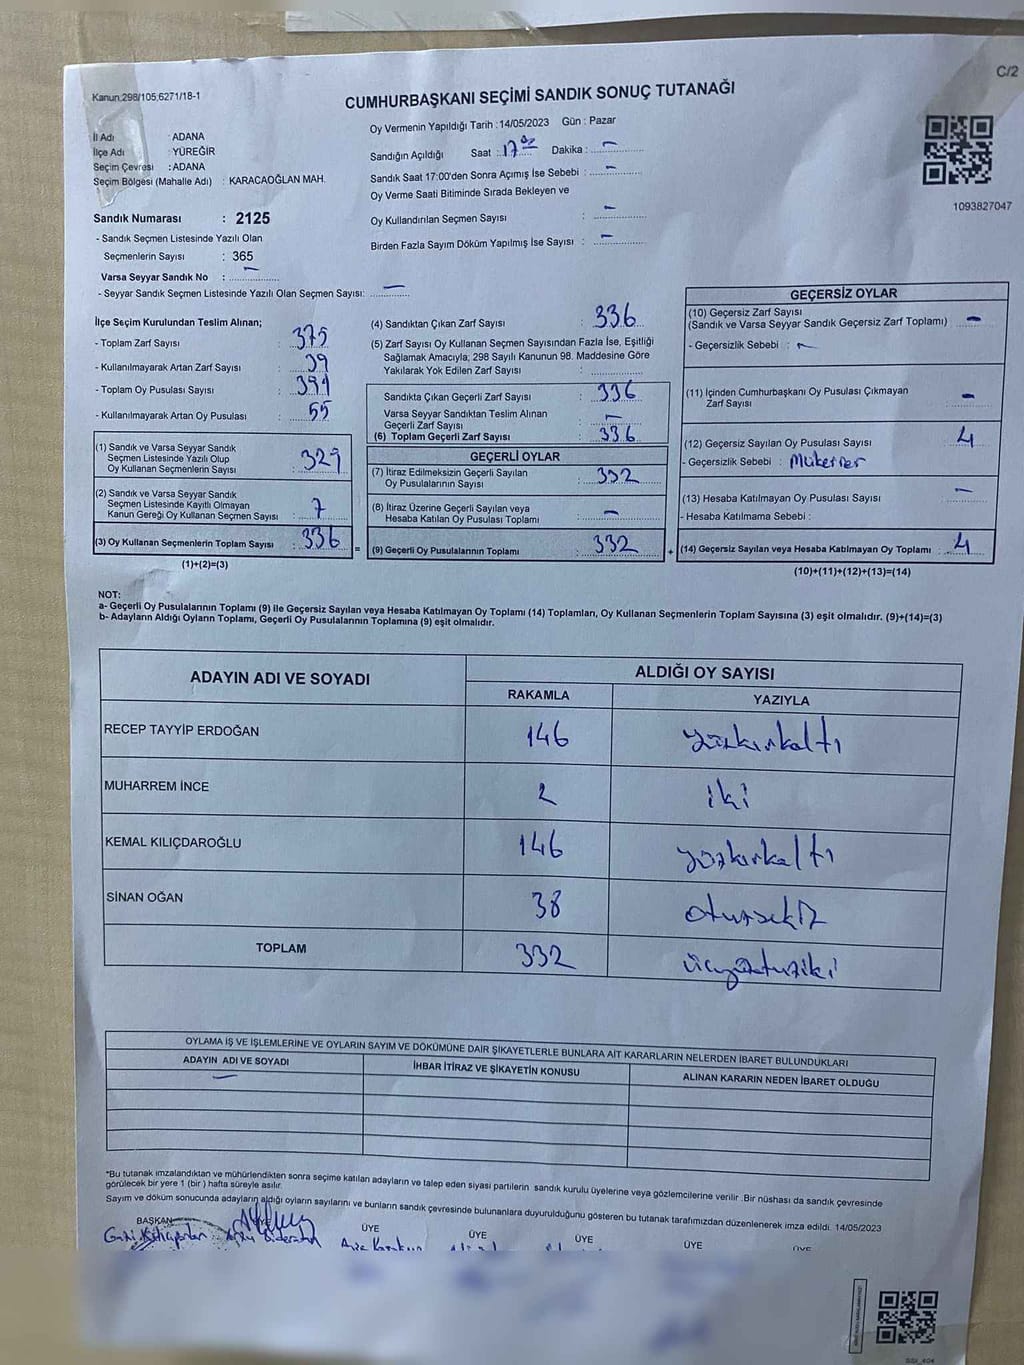 C/2
Kanun:298/105;6271/18-1
CUMHURBAŞKANI SEÇİMİ SANDIK SONUÇ TUTANAĞI
İl Adı : ADANA
İlçe Adı : YÜREĞİR
Seçim Çevresi : ADANA
Seçim Bölgesi (Mahalle Adı) : KARACAOĞLAN MAH.
Sandık Numarası : 2125
- Sandık Seçmen Listesinde Yazılı Olan
Seçmenlerin Sayısı : 365
Varsa Seyyar Sandık No : —
- Seyyar Sandık Seçmen Listesinde Yazılı Olan Seçmen Sayısı: —
Oy Vermenin Yapıldığı Tarih :14/05/2023 Gün : Pazar
Sandığın Açıldığı Saat : 17 Dakika : —
Sandık Saat 17:00'den Sonra Açımış İse Sebebi : —
Oy Verme Saati Bitiminde Sırada Bekleyen ve
Oy Kullandırılan Seçmen Sayısı : —
Birden Fazla Sayım Döküm Yapılmış İse Sayısı : —
1093827047
İlçe Seçim Kurulundan Teslim Alınan;
- Toplam Zarf Sayısı : 375
- Kullanılmayarak Artan Zarf Sayısı : 39
- Toplam Oy Pusulası Sayısı : 391
- Kullanılmayarak Artan Oy Pusulası : 55
(1) Sandık ve Varsa Seyyar Sandık
Seçmen Listesinde Yazılı Olup
Oy Kullanan Seçmenlerin Sayısı : 329
(2) Sandık ve Varsa Seyyar Sandık
Seçmen Listesinde Kayıtlı Olmayan
Kanun Gereği Oy Kullanan Seçmen Sayısı : 7
(3) Oy Kullanan Seçmenlerin Toplam Sayısı : 336
(1)+(2)=(3)
(4) Sandıktan Çıkan Zarf Sayısı : 336
(5) Zarf Sayısı Oy Kullanan Seçmen Sayısından Fazla İse, Eşitliği
Sağlamak Amacıyla; 298 Sayılı Kanunun 98. Maddesine Göre
Yakılarak Yok Edilen Zarf Sayısı :
Sandıkta Çıkan Geçerli Zarf Sayısı : 336
Varsa Seyyar Sandıktan Teslim Alınan
Geçerli Zarf Sayısı : —
(6) Toplam Geçerli Zarf Sayısı : 336
GEÇERLİ OYLAR
(7) İtiraz Edilmeksizin Geçerli Sayılan
Oy Pusulalarının Sayısı : 332
(8) İtiraz Üzerine Geçerli Sayılan veya
Hesaba Katılan Oy Pusulası Toplamı : —
= (9) Geçerli Oy Pusulalarının Toplamı : 332
GEÇERSİZ OYLAR
(10) Geçersiz Zarf Sayısı
(Sandık ve Varsa Seyyar Sandık Geçersiz Zarf Toplamı) : —
- Geçersizlik Sebebi : —
(11) İçinden Cumhurbaşkanı Oy Pusulası Çıkmayan
Zarf Sayısı : —
(12) Geçersiz Sayılan Oy Pusulası Sayısı : 4
- Geçersizlik Sebebi : Mükerrer
(13) Hesaba Katılmayan Oy Pusulası Sayısı : —
- Hesaba Katılmama Sebebi :
+ (14) Geçersiz Sayılan veya Hesaba Katılmayan Oy Toplamı : 4
(10)+(11)+(12)+(13)=(14)
NOT:
a- Geçerli Oy Pusulalarının Toplamı (9) ile Geçersiz Sayılan veya Hesaba Katılmayan Oy Toplamı (14) Toplamları, Oy Kullanan Seçmenlerin Toplam Sayısına (3) eşit olmalıdır. (9)+(14)=(3)
b- Adayların Aldığı Oyların Toplamı, Geçerli Oy Pusulalarının Toplamına (9) eşit olmalıdır.
ADAYIN ADI VE SOYADI
ALDIĞI OY SAYISI
RAKAMLA YAZIYLA
RECEP TAYYİP ERDOĞAN 146 yüzkırkaltı
MUHARREM İNCE 2 iki
KEMAL KILIÇDAROĞLU 146 yüzkırkaltı
SİNAN OĞAN 38 otuzsekiz
TOPLAM 332 üçyüzotuziki
OYLAMA İŞ VE İŞLEMLERİNE VE OYLARIN SAYIM VE DÖKÜMÜNE DAİR ŞİKAYETLERLE BUNLARA AİT KARARLARIN NELERDEN İBARET BULUNDUKLARI
ADAYIN ADI VE SOYADI İHBAR İTİRAZ VE ŞİKAYETİN KONUSU ALINAN KARARIN NEDEN İBARET OLDUĞU
—
*Bu tutanak imzalandıktan ve mühürlendikten sonra seçime katılan adayların ve talep eden siyasi partilerin sandık kurulu üyelerine veya gözlemcilerine verilir .Bir nüshası da sandık çevresinde
görülecek bir yere 1 (bir ) hafta süreyle asılır.
Sayım ve döküm sonucunda adayların aldığı oyların sayılarını ve bunların sandık çevresinde bulunanlara duyurulduğunu gösteren bu tutanak tarafımızdan düzenlenerek imza edildi. 14/05/2023
BAŞKAN ÜYE ÜYE ÜYE ÜYE ÜYE